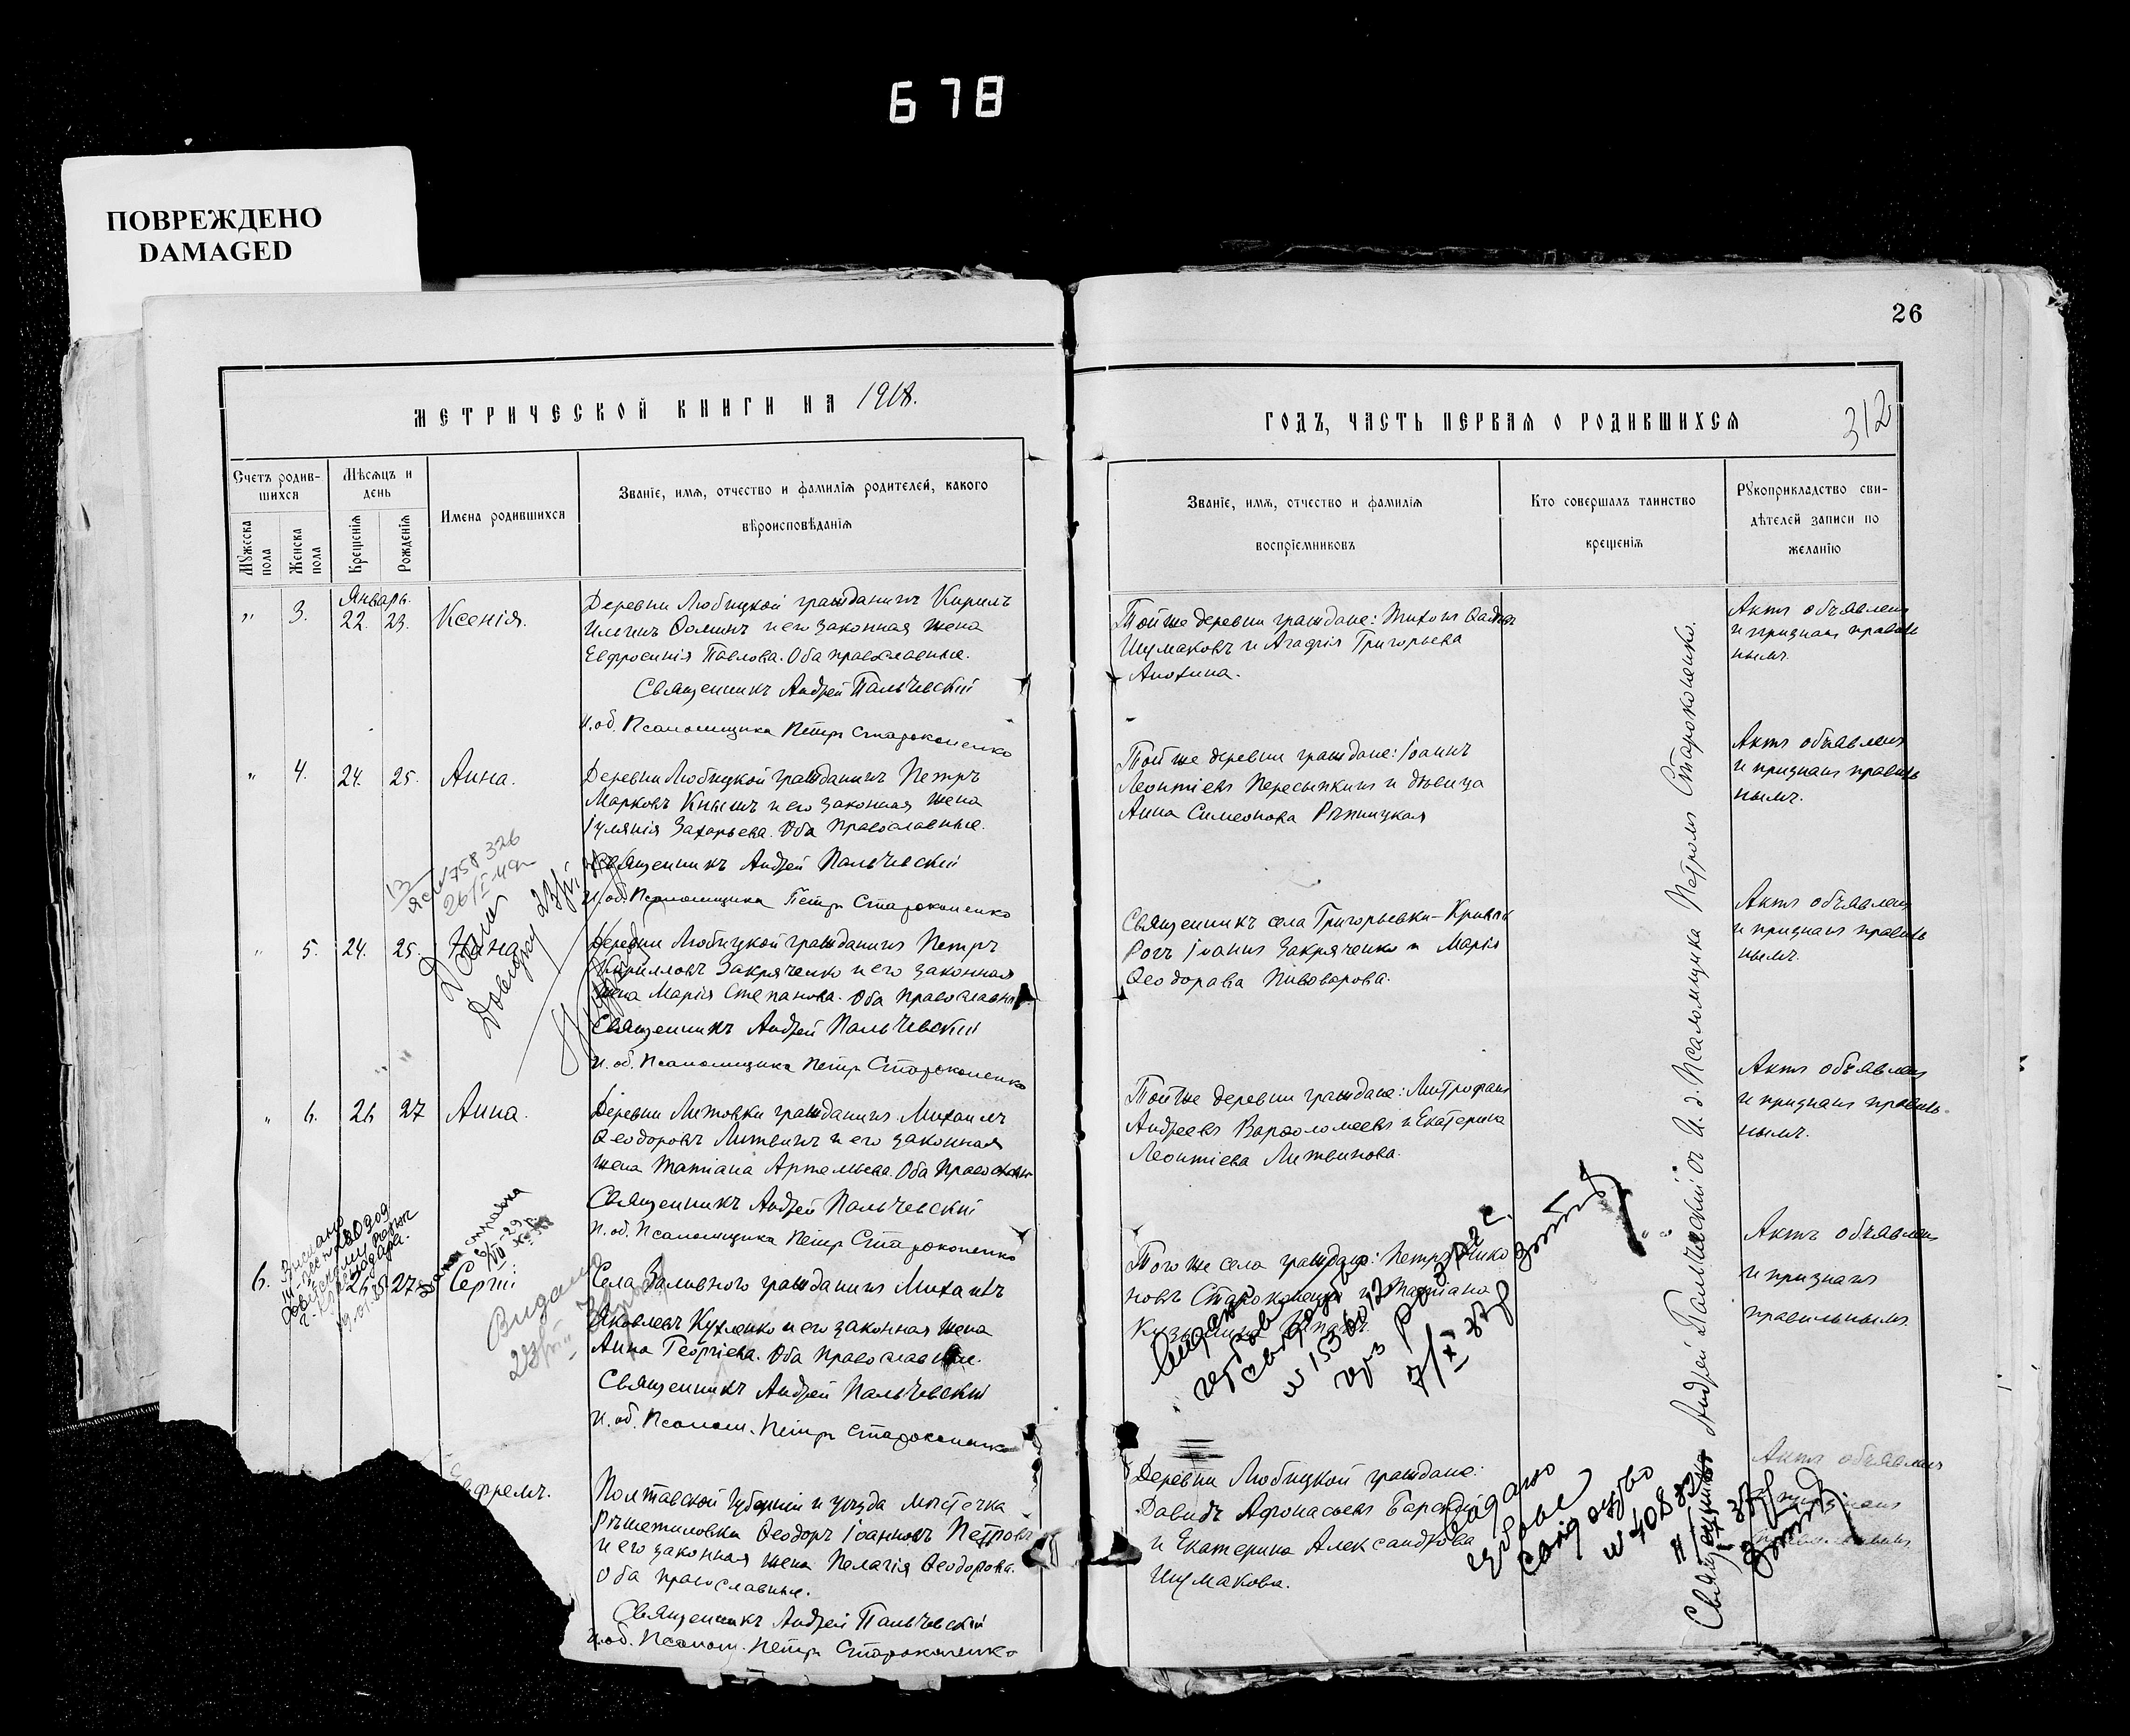 678
ПОВРЕЖДЕНО
DAMAGED
26
МЕТРИЧЕСКОЙ КНИГИ НА 1918.
ГОДЪ, ЧАСТЬ ПЕРВАЯ О РОДИВШИХСЯ
312
Счетъ родив-
шихся
Мѣсяцъ и
день
Мужеска
пола
Женска
пола
Крещенія
Рожденія
Имена родившихся
Званіе, имя, отчество и фамилія родителей, какого
вѣроисповѣданія
Званіе, имя, отчество и фамилія
воспріемниковъ
Кто совершалъ таинство
крещенія
Рукоприкладство сви-
дѣтелей записи по
желанію
Январь.
" 3. 22. 23. Ксенія.
Деревни Любицкой гражданинъ Кирилъ
и его законная жена
Евфросинія Павлова. Оба православные.
Священникъ Андрей Пальчевскій
И. об. Псаломщика Петръ Староконенко
Той же деревни граждане: Тихонъ
Шумаковъ и Агафія Григорьева
Анохина.
Актъ объявленъ
и признанъ правиль
нымъ.
" 4. 24. 25. Анна.
Деревни Любицкой гражданинъ Петръ
Марковъ Кнышъ и его законная жена
Іуліанія Захарьева. Оба православные.
Священникъ Андрей Пальчевскій
И. об. Псаломщика Петръ Староконенко
Той же деревни граждане: Іоаннъ
Леонтіевъ Пересыпкинъ и дѣвица
Анна Симеонова Рѣпицкая
Актъ объявленъ
и признанъ правиль
нымъ.
№ 758326
" 5. 24. 25.
Довидку
Деревни Любицкой гражданинъ Петръ
Кирилловъ Закряченко и его законная
жена Марія Степанова. Оба православн
Священникъ Андрей Пальчевскій
И. об. Псаломщика Петръ Староконенко
Священникъ села Григорьевки-Кривой
Рогъ Іоаннъ Закряченко и Марія
Ѳеодорова Пивоварова.
Актъ объявленъ
и признанъ правиль
нымъ.
" 6. 26 27 Анна.
Деревни Литовки гражданинъ Михаилъ
Ѳеодоровъ Литвинъ и его законная
жена Татіана Артемьева. Оба православн
Священникъ Андрей Пальчевскій
И. об. Псаломщика Петръ Староконенко
Той же деревни граждане: Митрофанъ
Андреевъ Варѳоломеевъ и Екатерина
Леонтіева Литвинова.
Актъ объявленъ
и признанъ правиль-
нымъ.
6. 27 Сергій
Видано
Села Заливного гражданинъ Михаилъ
Яковлевъ Кухленко и его законная жена
Анна Георгіева. Оба православные.
Священникъ Андрей Пальчевскій
И. об. Псалом. Петръ Староконенко
Того же села граждане: Петръ
новъ Староконенко и Татіана
Видано
7/X 37 р
Актъ объявленъ
и признанъ
правильнымъ
Полтавской губерніи и уѣзда мѣстечка
Рѣшетиловка Ѳеодоръ Іоанновъ Петровъ
и его законная жена Пелагія Ѳеодорова.
Оба православные.
Священникъ Андрей Пальчевскій
И. об. Псалом. Петръ Староконенко
Деревни Любицкой граждане:
Давидъ Афонасьевъ
и Екатерина Александрова
Шумакова.
Видано
Актъ объявленъ
Священникъ Андрей Пальчевскій съ И. д. Псаломщика Петромъ Староконенко.